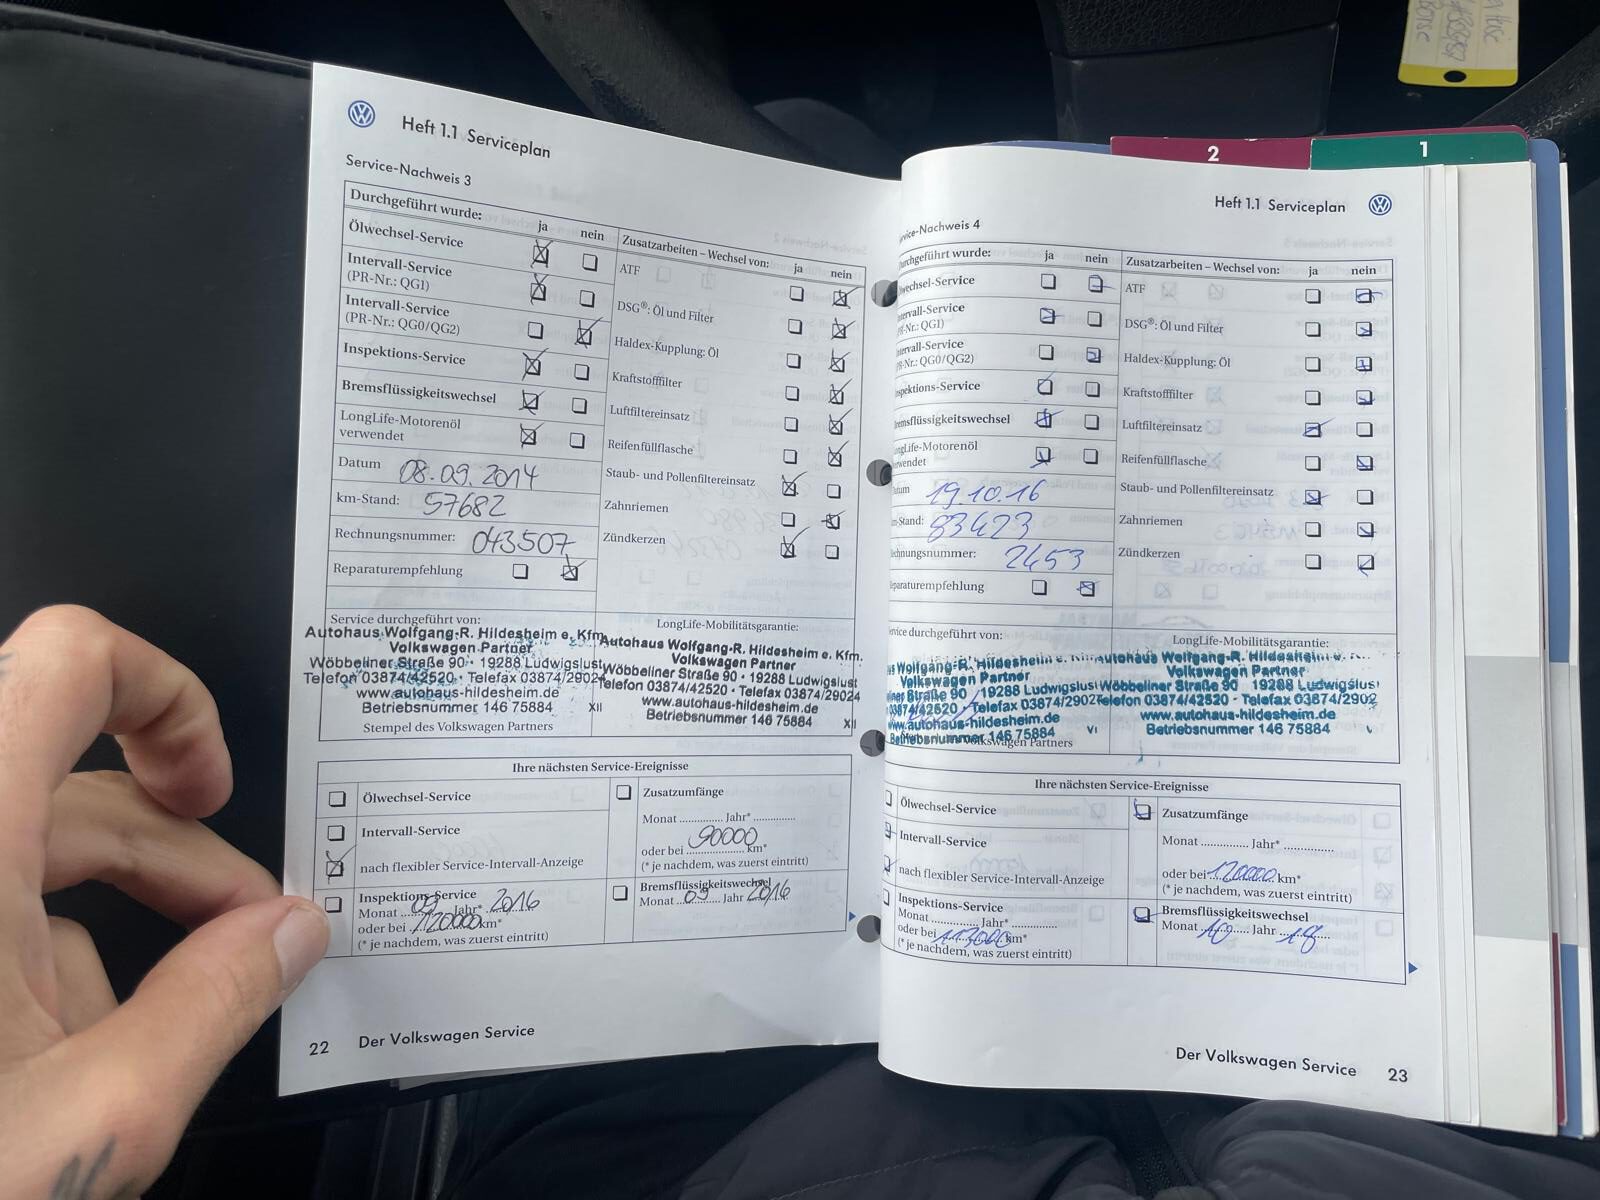 Heft 1.1 Serviceplan
Service-Nachweis 3
Durchgeführt wurde: ja nein
Ölwechsel-Service
Intervall-Service
(PR-Nr.: QG1)
Intervall-Service
(PR-Nr.: QG0/QG2)
Inspektions-Service
Bremsflüssigkeitswechsel
LongLife-Motorenöl
verwendet
Datum 08.09.2014
km-Stand: 57682
Rechnungsnummer: 043507
Reparaturempfehlung
Zusatzarbeiten – Wechsel von: ja nein
ATF
DSG®: Öl und Filter
Haldex-Kupplung: Öl
Kraftstofffilter
Luftfiltereinsatz
Reifenfüllflasche
Staub- und Pollenfiltereinsatz
Zahnriemen
Zündkerzen
Service durchgeführt von:
Autohaus Wolfgang-R. Hildesheim e. Kfm.
Volkswagen Partner
Wöbbeliner Straße 90 · 19288 Ludwigslust
Telefon 03874/42520 · Telefax 03874/29024
www.autohaus-hildesheim.de
Betriebsnummer 146 75884 XII
Stempel des Volkswagen Partners
LongLife-Mobilitätsgarantie:
Autohaus Wolfgang-R. Hildesheim e. Kfm.
Volkswagen Partner
Wöbbeliner Straße 90 · 19288 Ludwigslust
Telefon 03874/42520 · Telefax 03874/29024
www.autohaus-hildesheim.de
Betriebsnummer 146 75884 XII
Ihre nächsten Service-Ereignisse
Ölwechsel-Service
Intervall-Service
nach flexibler Service-Intervall-Anzeige
Inspektions-Service
Monat 09 Jahr* 2016
oder bei 120000 km*
(* je nachdem, was zuerst eintritt)
Zusatzumfänge
Monat ............... Jahr* ...............
oder bei 90000 km*
(* je nachdem, was zuerst eintritt)
Bremsflüssigkeitswechsel
Monat 09 Jahr 2016
22 Der Volkswagen Service
2
1
Heft 1.1 Serviceplan
Service-Nachweis 4
Durchgeführt wurde: ja nein
Ölwechsel-Service
Intervall-Service
(PR-Nr.: QG1)
Intervall-Service
(PR-Nr.: QG0/QG2)
Inspektions-Service
Bremsflüssigkeitswechsel
LongLife-Motorenöl
verwendet
Datum 19.10.16
km-Stand: 83423
Rechnungsnummer: 2453
Reparaturempfehlung
Zusatzarbeiten – Wechsel von: ja nein
ATF
DSG®: Öl und Filter
Haldex-Kupplung: Öl
Kraftstofffilter
Luftfiltereinsatz
Reifenfüllflasche
Staub- und Pollenfiltereinsatz
Zahnriemen
Zündkerzen
Service durchgeführt von:
Wolfgang-R. Hildesheim
Volkswagen Partner
Straße 90 19288 Ludwigslus
03874/42520 · Telefax 03874/2902
www.autohaus-hildesheim.de
Betriebsnummer 146 75884 VI
Volkswagen Partners
LongLife-Mobilitätsgarantie:
Autohaus Wolfgang-R. Hildesheim
Volkswagen Partner
Wöbbeliner Straße 90 19288 Ludwigslus
Telefon 03874/42520 · Telefax 03874/2902
www.autohaus-hildesheim.de
Betriebsnummer 146 75884 V
Ihre nächsten Service-Ereignisse
Ölwechsel-Service
Intervall-Service
nach flexibler Service-Intervall-Anzeige
Inspektions-Service
Monat ............... Jahr* ...............
oder bei 113000 km*
(* je nachdem, was zuerst eintritt)
Zusatzumfänge
Monat ............... Jahr* ...............
oder bei 120000 km*
(* je nachdem, was zuerst eintritt)
Bremsflüssigkeitswechsel
Monat 10 Jahr 18
Der Volkswagen Service 23